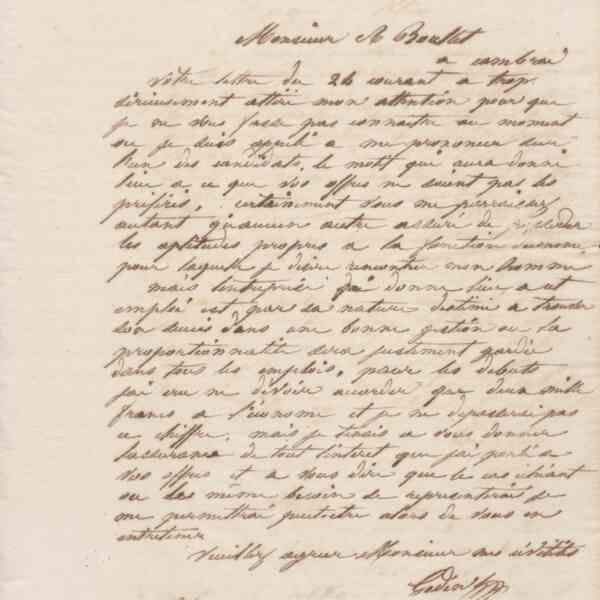 Monsieur A Boullet
a cambrai
Votre lettre du 26 courant a trop
sérieusement attiré mon attention pour que
je ne vous fasse pas connaitre au moment
ou je suis appelé a me prononcer sur
l'un des candidats, le motif qui aura donné
lieu a ce que vos offres ne soient pas les
préférés. certainement vous me paraissez
autant qu'aucun autre assuré de posséder
les aptitudes propres a la fonction d'économe
pour laquelle je désire rencontrer mon homme
mais l'entreprise qui donne lieu a cet
emploi est par sa nature destiné a trouver
son succès dans une bonne gestion ou la
proportionnalité sera justement gardée
dans tous les emplois, pour les debuts
j'ai cru ne devoir accorder que deux mille
francs a l'économe et je ne depasserai pas
ce chiffre, mais je tenais a vous donner
l'assurance de tout l'interet que j'ai porté a
vos offres et a vous dire que le cas échéant
ou ce même besoin se representerait je
me permettrai peut etre alors de vous en
entretenir
Veuillez agréer Monsieur mes civilités
Godin